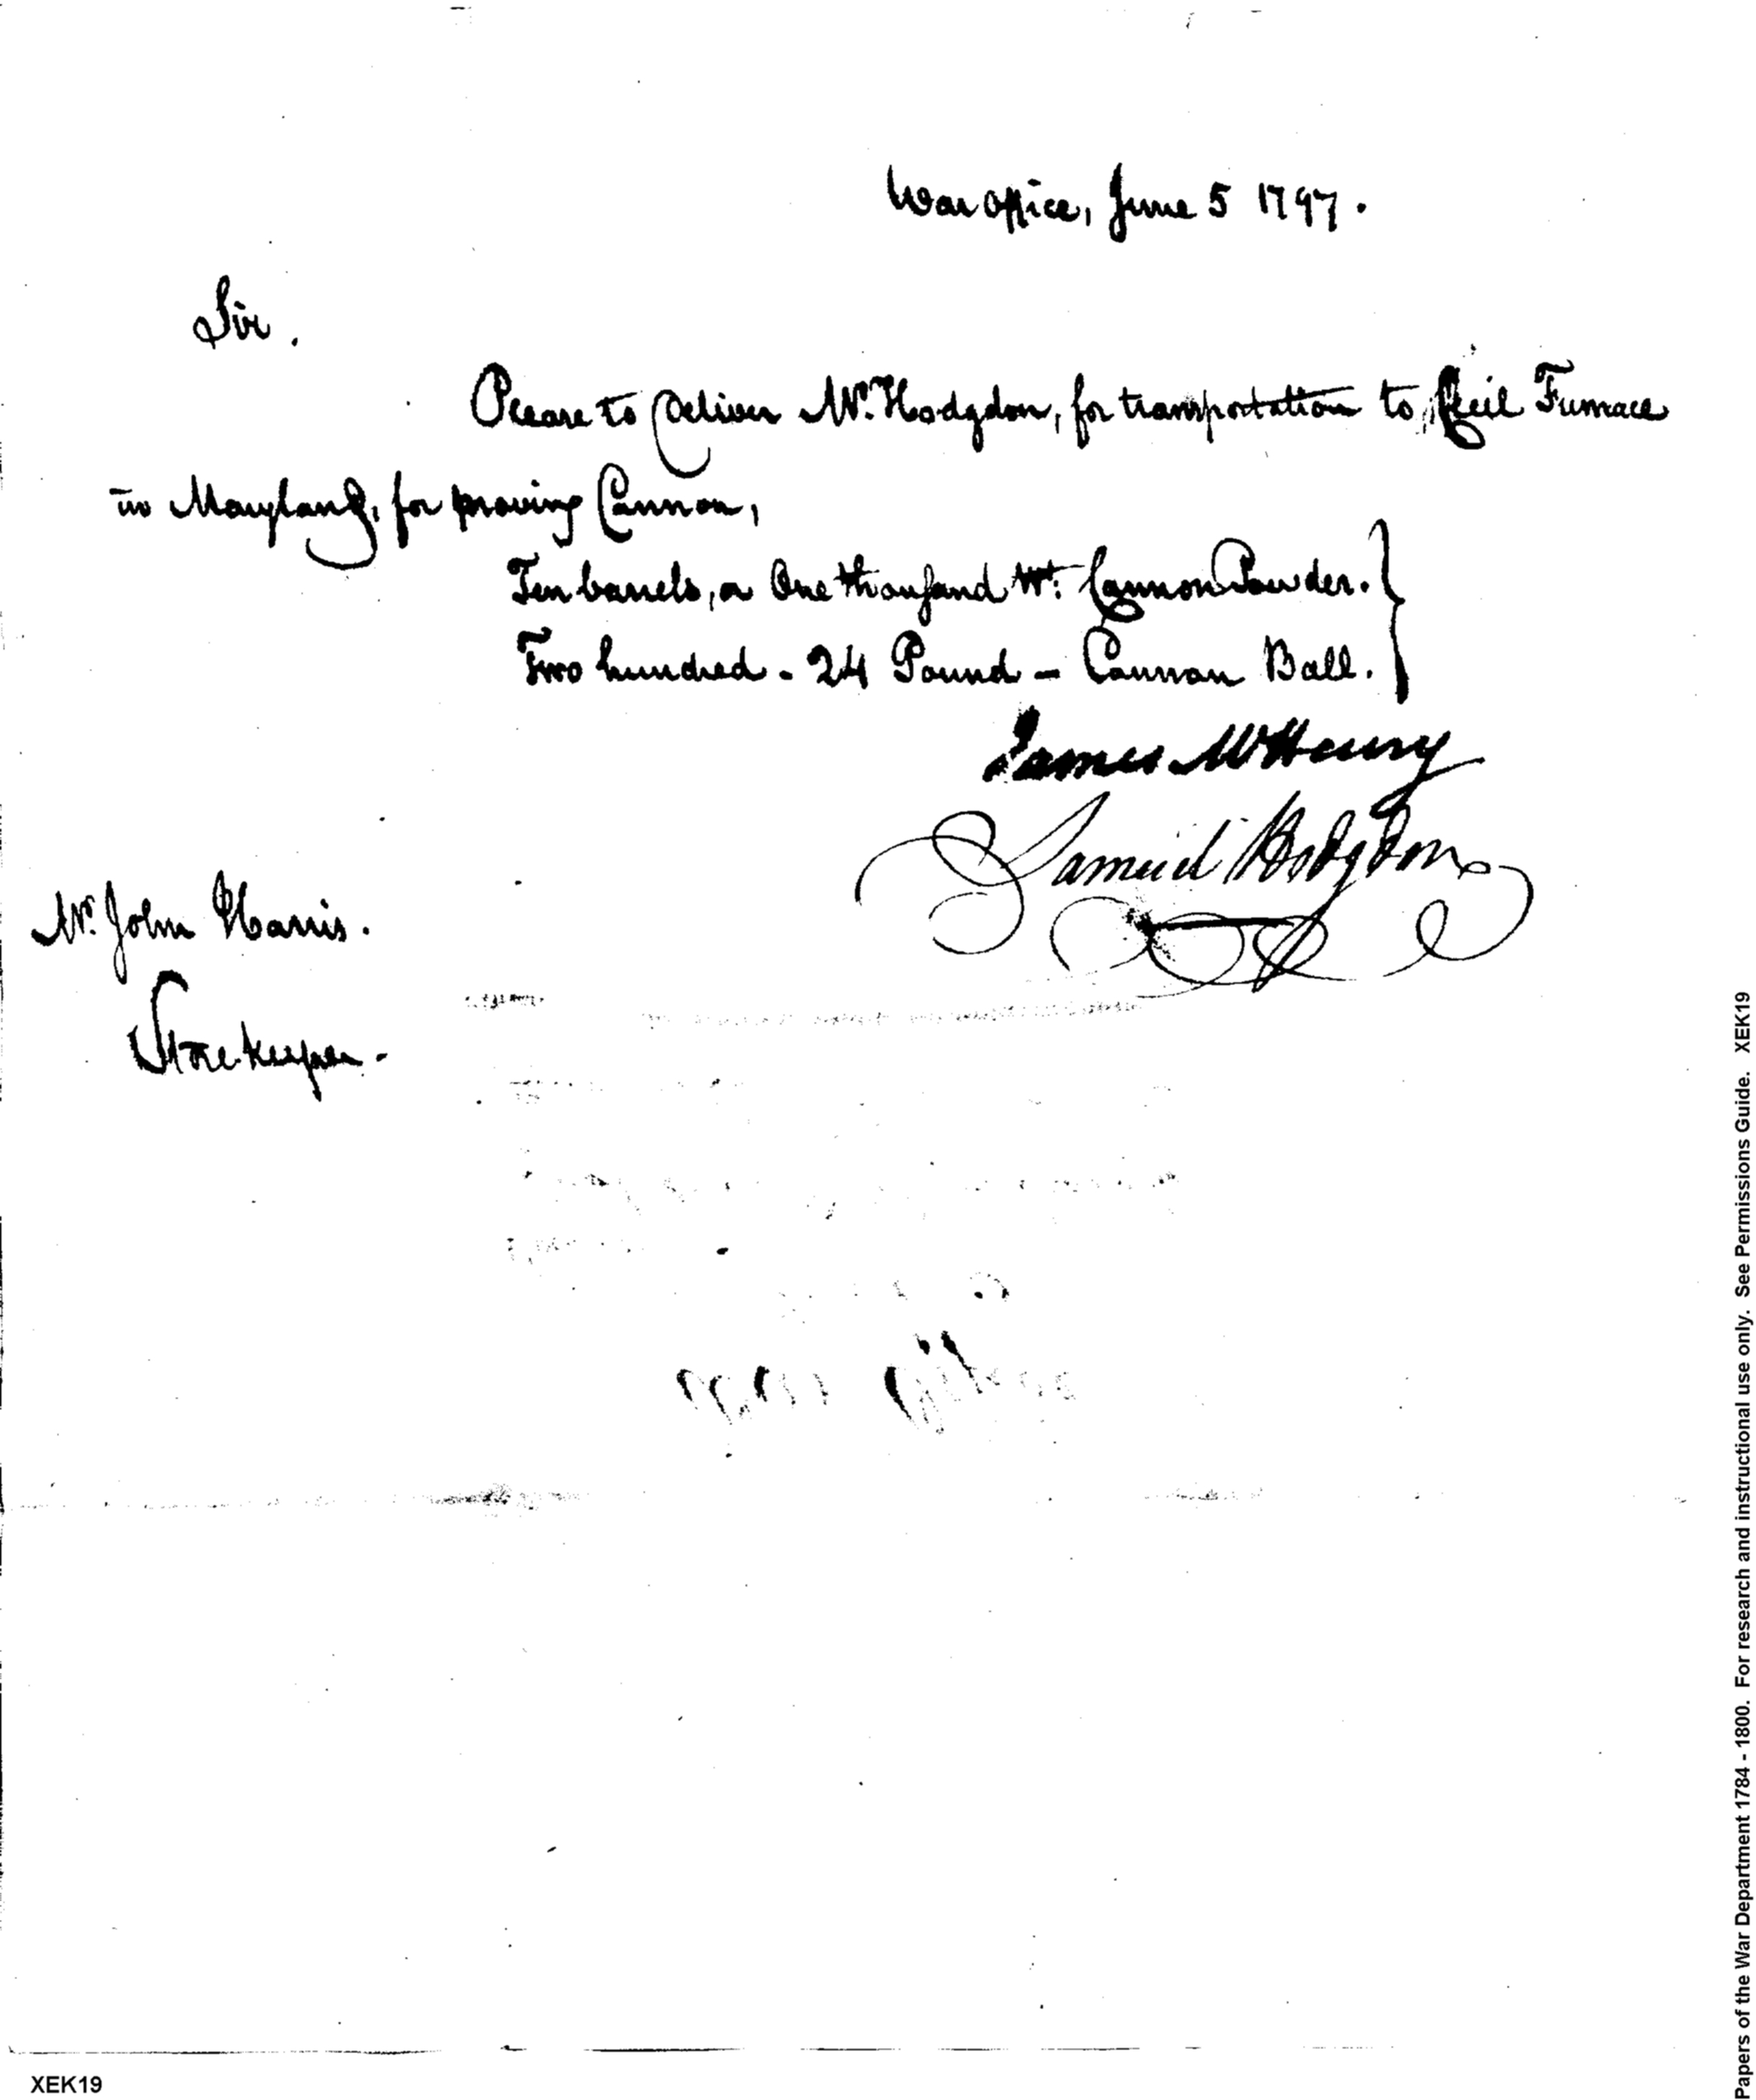 War office, June 5 1797.
Sir.
Please to Deliver Mr. Hodgdon, for transportation to Ceil Furnace
in Maryland, for proving Cannon,
Ten barrels, or One thousand Wt: Cannon Powder.
Two hundred - 24 Pound - Cannon Ball.
James McHenry
Samuel Hodgdon
Mr. John Harris.
Storekeeper.
Papers of the War Department 1784 - 1800. For research and instructional use only. See Permissions Guide. XEK19
XEK19